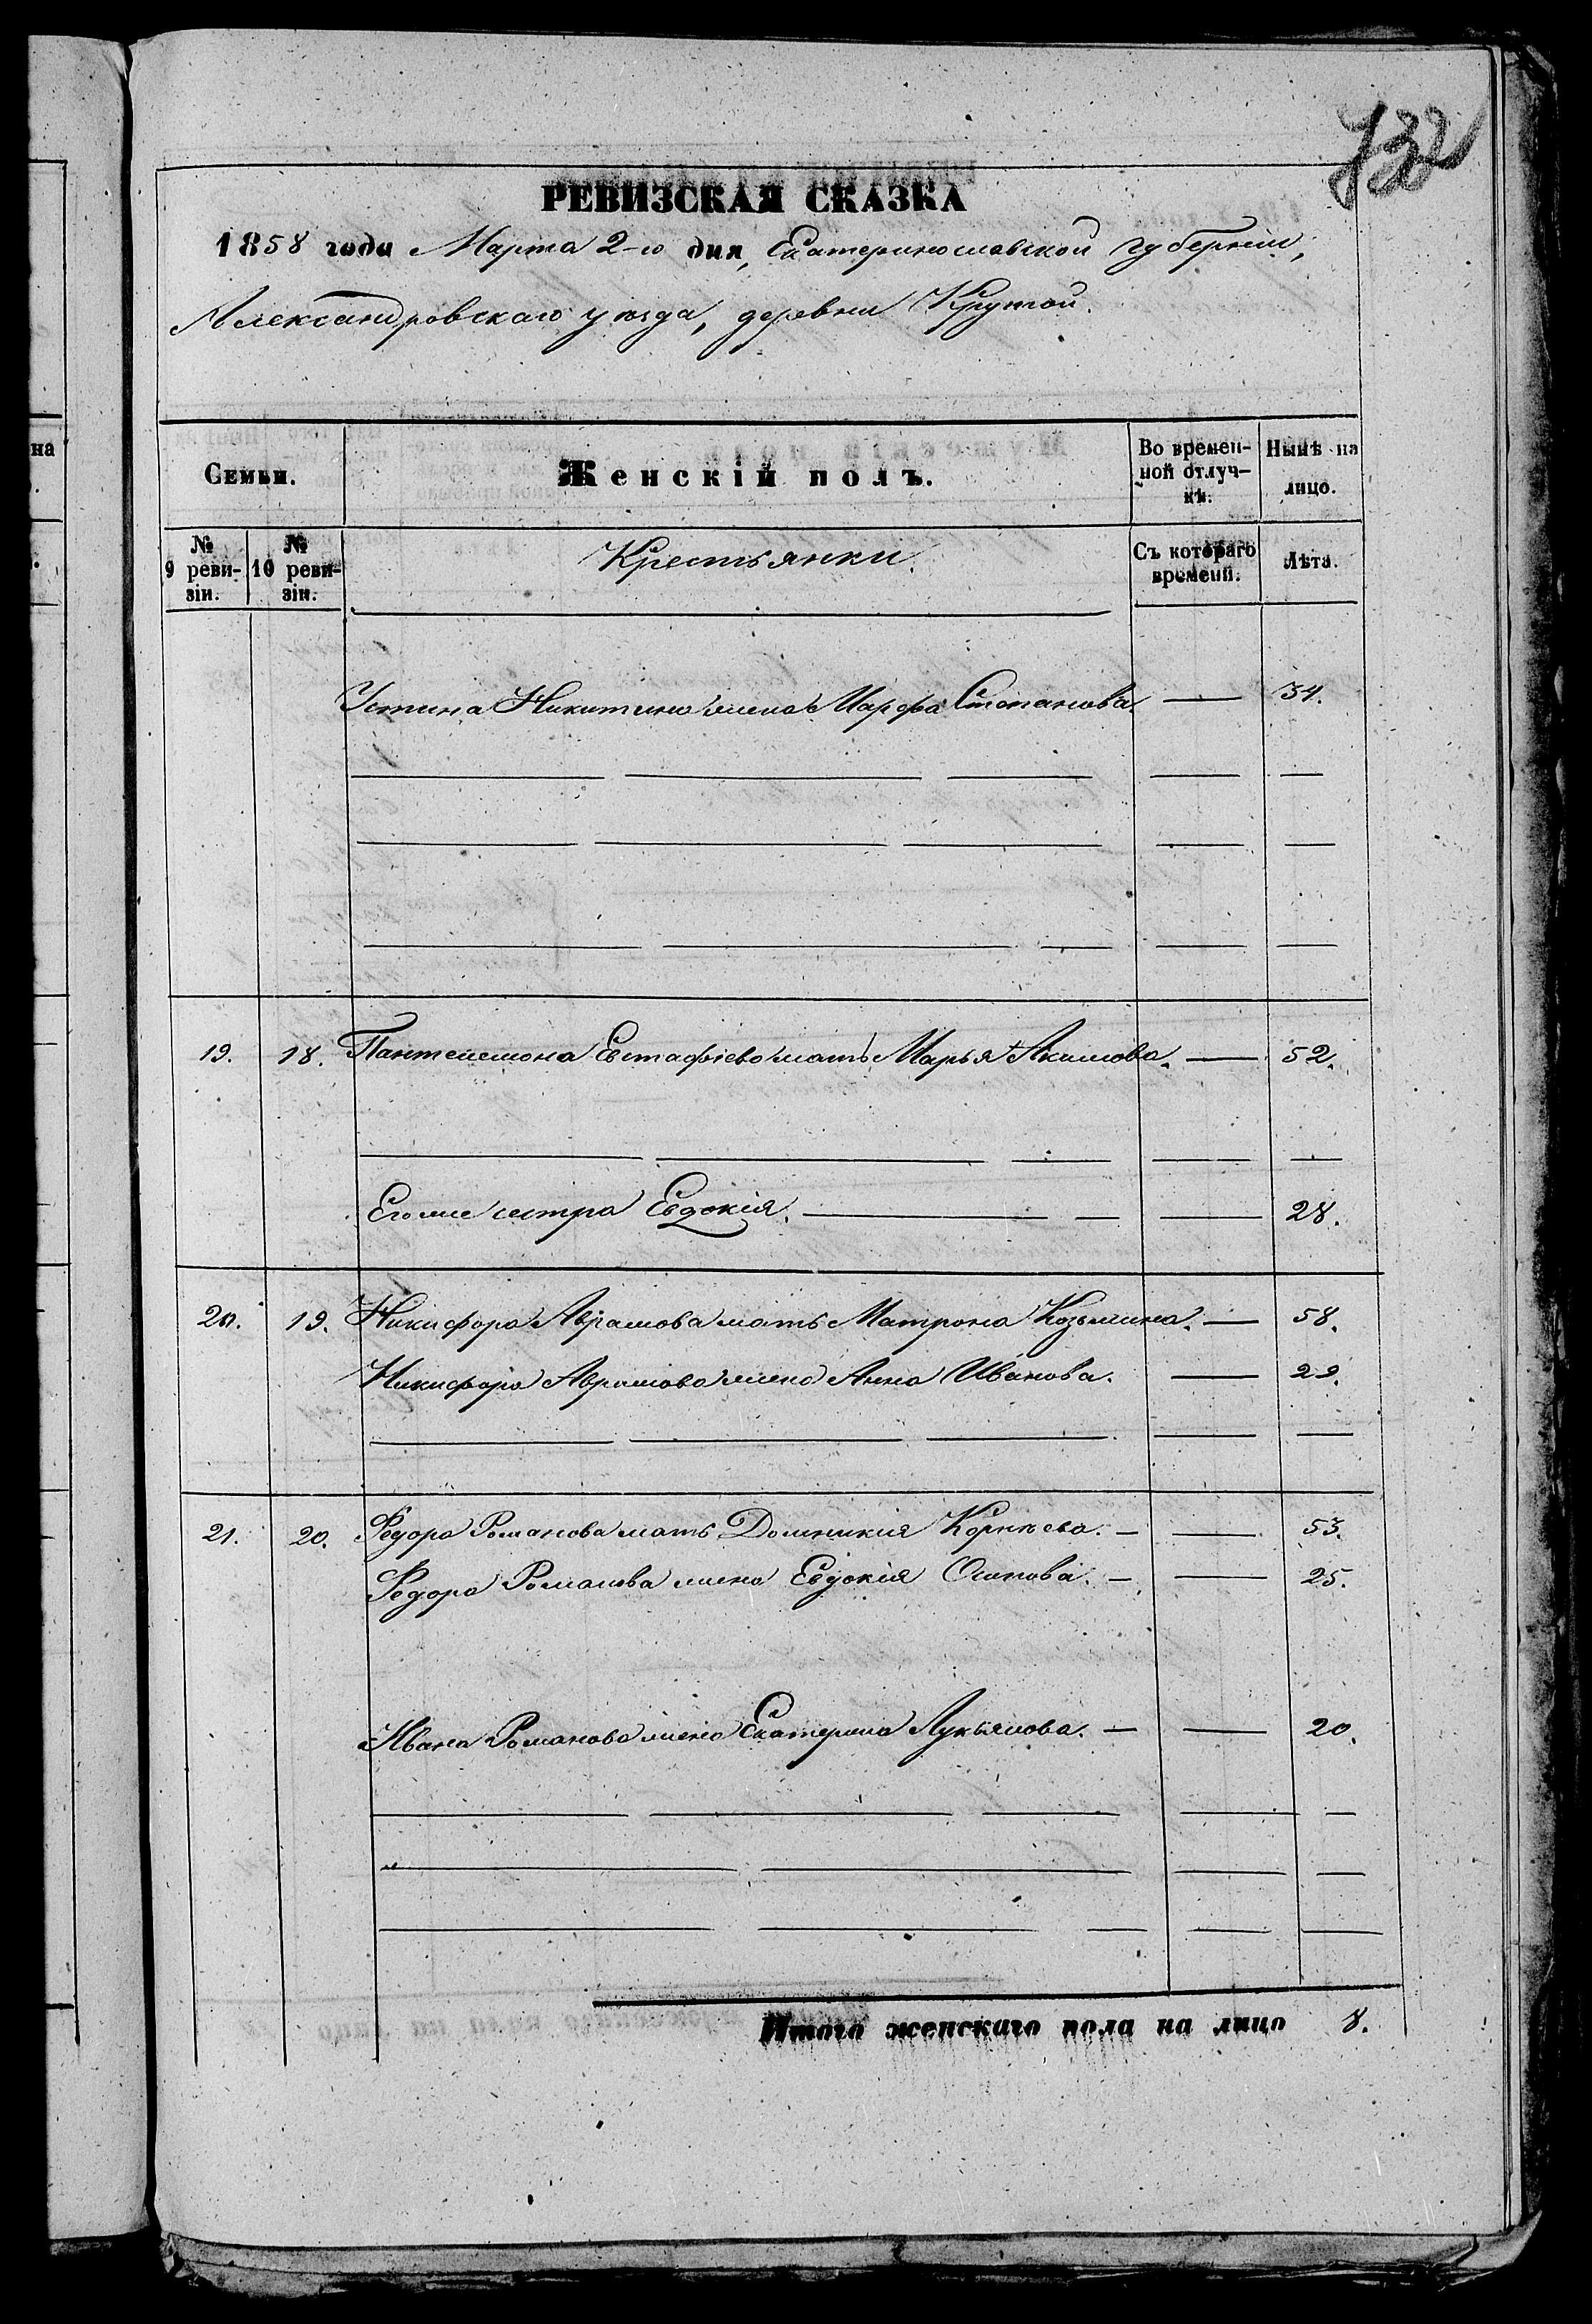 732
РЕВИЗСКАЯ СКАЗКА
1858 года Марта 2-го дня, Екатеринославской губерніи,
Александровскаго уѣзда, деревни Крутой.
Семьи.
Женскій полъ.
Во времен-
ной отлуч-
кѣ.
Нынѣ на
лицо.
№
9 реви-
зіи.
№
10 реви-
зіи.
Крестьянки.
Съ котораго
времени.
Лѣта.
Устина Никитина жена Марфа Степанова. 34.
19. 18. Пантелемона Евстафіева мать Марья Акимова. 52.
Его же сестра Евдокія. 28.
20. 19. Никифора Аврамова мать Матрона Козьмина. 58.
Никифора Аврамова жена Анна Иванова. 29.
21. 20. Федора Романова мать Домникия Корнѣева. 53.
Федора Романова жена Евдокія Осипова. 25.
Ивана Романова жена Екатерина Лукьянова. 20.
Итого женскаго пола на лицо 8.
на